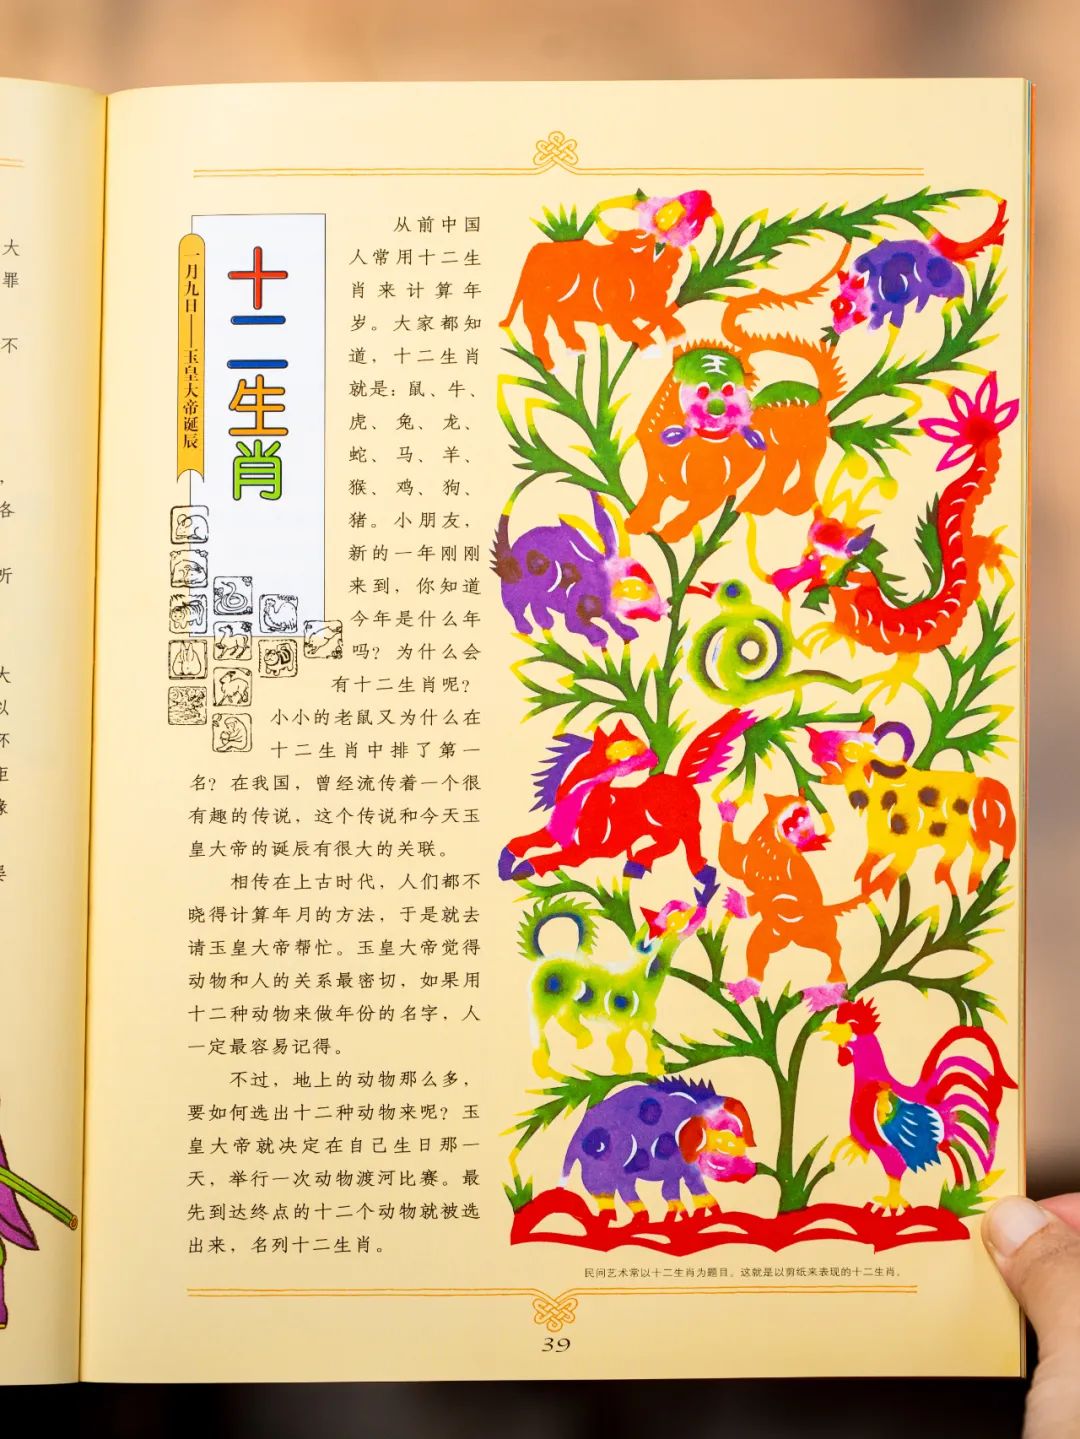 大
罪
不
，
各
听
大
以
一月九日——玉皇大帝诞辰
十二生肖
从前中国
人常用十二生
肖来计算年
岁。大家都知
道，十二生肖
就是：鼠、牛、
虎、兔、龙、
蛇、马、羊、
猴、鸡、狗、
猪。小朋友，
新的一年刚刚
来到，你知道
今年是什么年
吗？为什么会
有十二生肖呢？
小小的老鼠又为什么在
十二生肖中排了第一
名？在我国，曾经流传着一个很
有趣的传说，这个传说和今天玉
皇大帝的诞辰有很大的关联。
相传在上古时代，人们都不
晓得计算年月的方法，于是就去
请玉皇大帝帮忙。玉皇大帝觉得
动物和人的关系最密切，如果用
十二种动物来做年份的名字，人
一定最容易记得。
不过，地上的动物那么多，
要如何选出十二种动物来呢？玉
皇大帝就决定在自己生日那一
天，举行一次动物渡河比赛。最
先到达终点的十二个动物就被选
出来，名列十二生肖。
王
民间艺术常以十二生肖为题目。这就是以剪纸来表现的十二生肖。
39